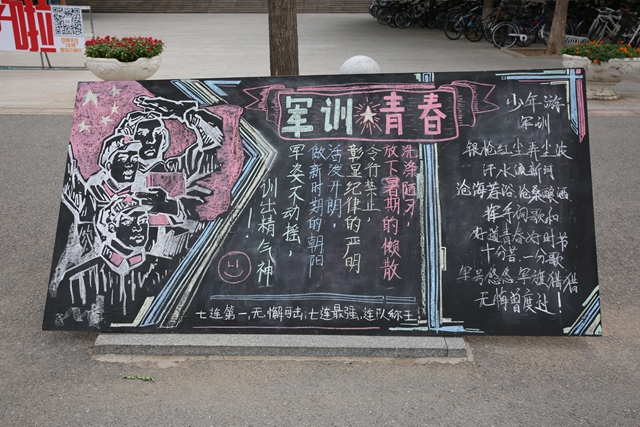 啦
军训★青春
洗涤陋习,
放下暑期的懒散
令行禁止,
彰显纪律的严明
活泼开朗,
做新时期的朝阳
军姿不动摇,
训出精气神
七连第一,无懈可击;七连最强,连队称王
少年游
军训
银枪红尘弄尘波
汗水流新河
沧海若浴,沧桑
挥手间歌和
好道青春好时节
十分苦,一分歌
军号悠悠,军旗猎猎
无悔曾度过!